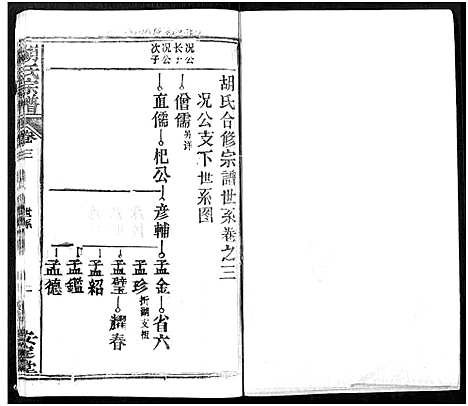 胡氏合修宗譜世系卷之三
况公支下世系图
况公長子
僧儒 另詳
况公次子
直儒
杞公
彦輔
孟金
省六
孟珍 折湖支祖
孟璧
耀春
孟紹
孟鑑
孟德
胡氏宗譜
卷三
世系
一
安定堂